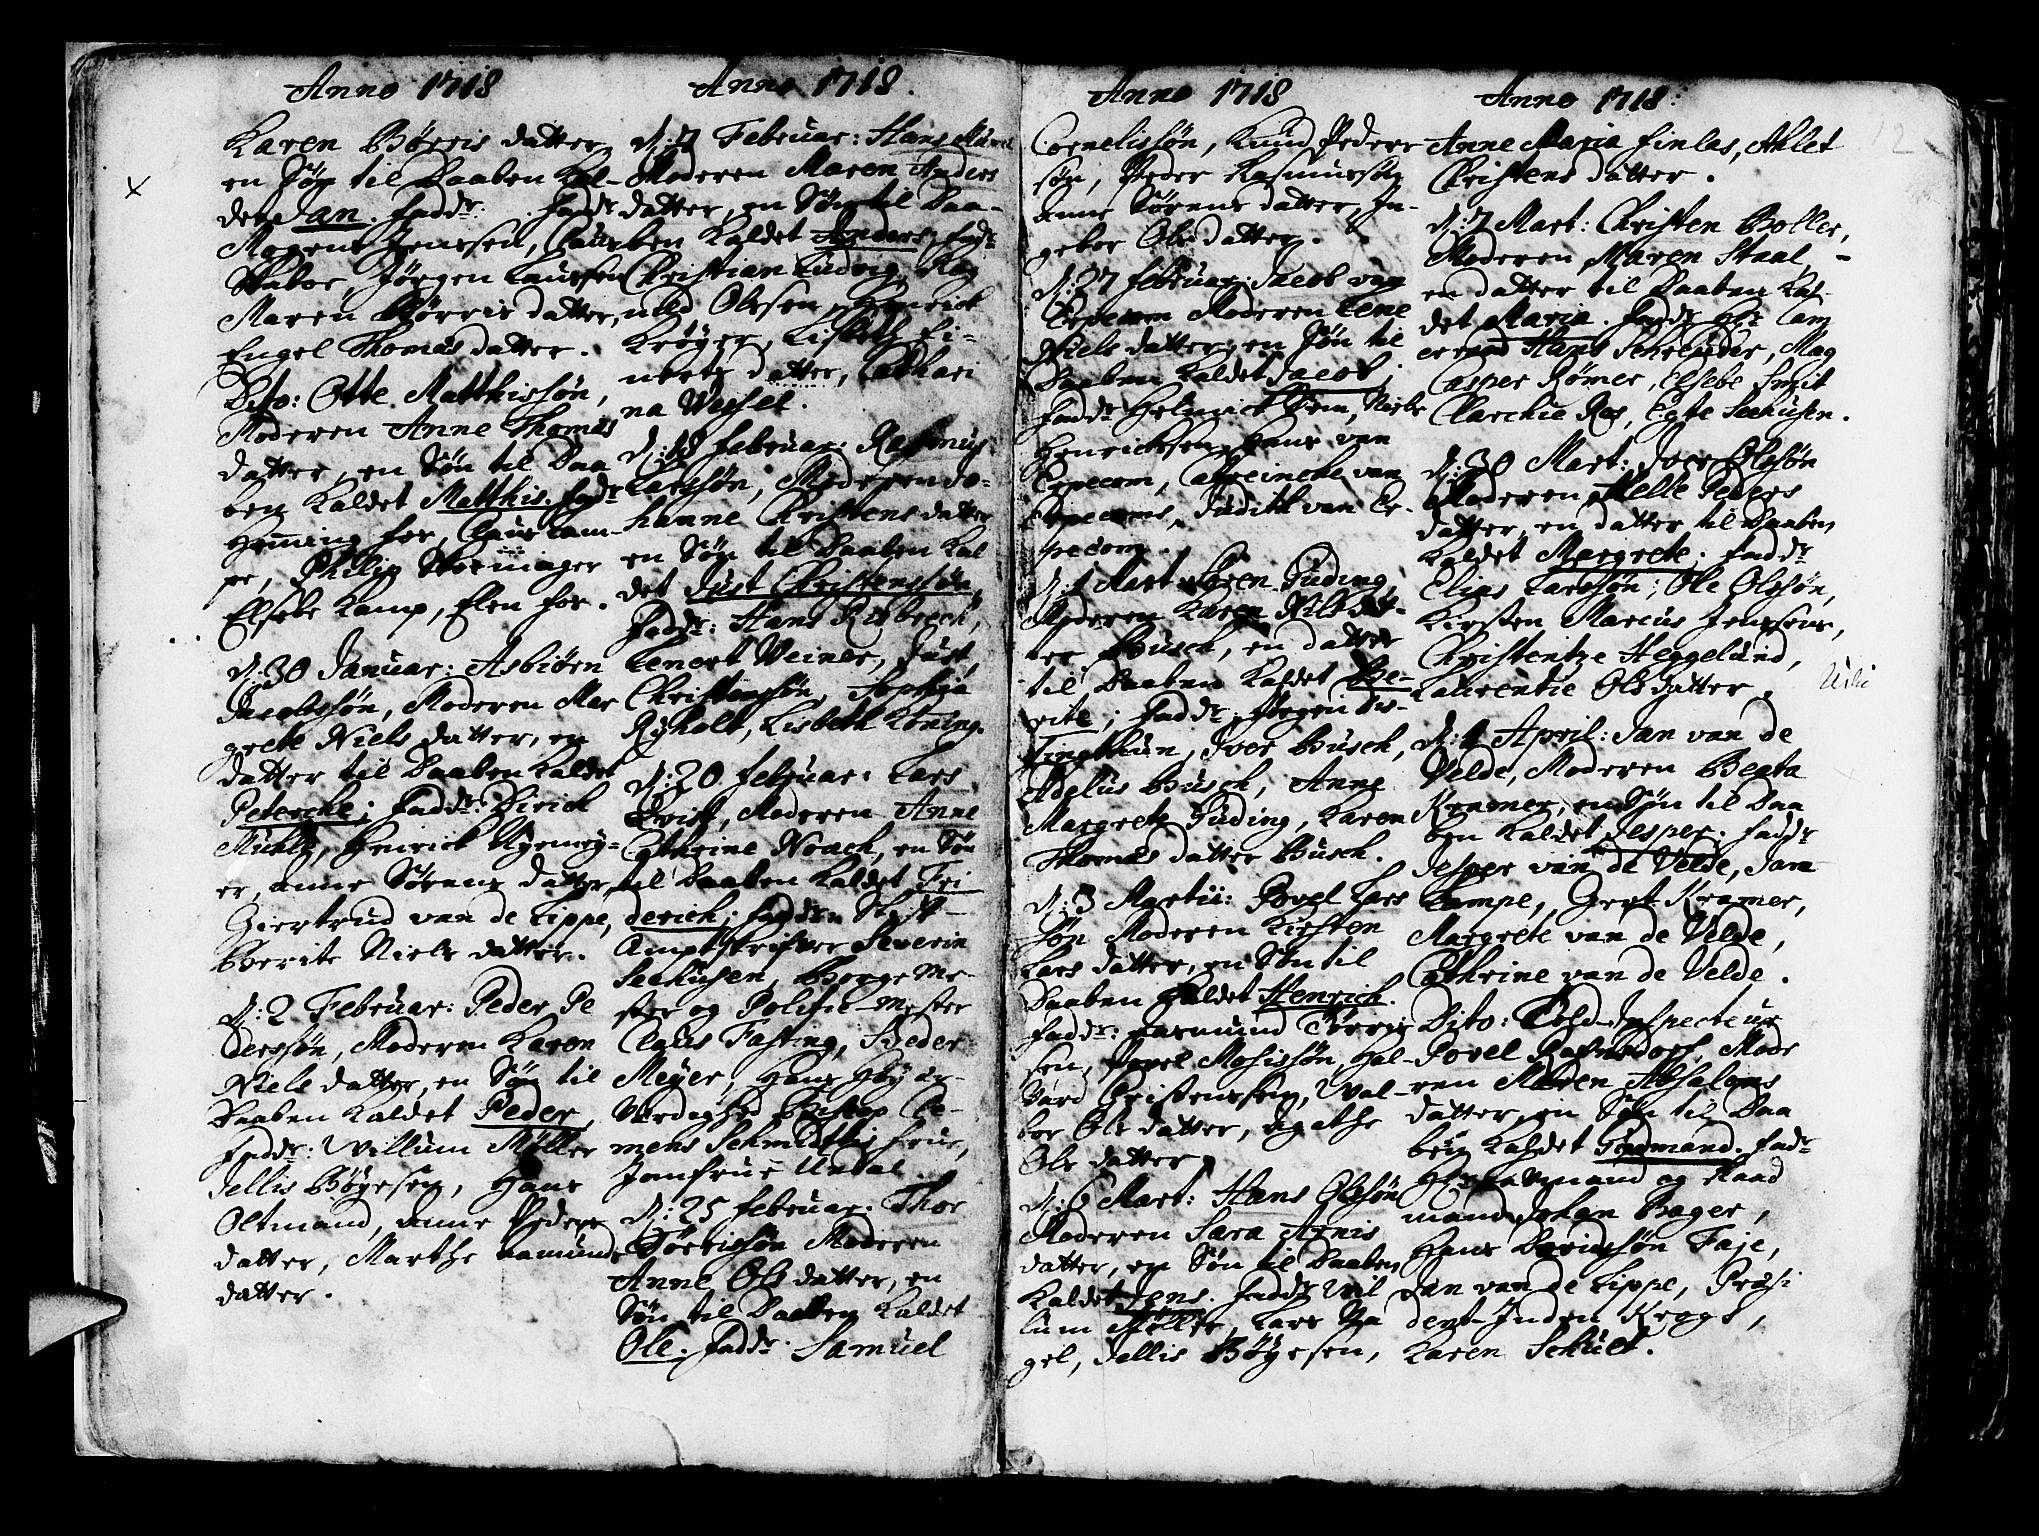 Anno 1718
Karen Börris datter,
en Søn til Daaben kal-
det Jan. Fadd:r
Mogens Jenssen, Claus
Jørgen Laurssen
Maren Börris datter,
Engel Thomas datter.
Dito: Otte Matthissøn,
Moderen Anne Thomas
datter, en Søn til Daa
ben kaldet Matthis. Fad:r
Heming for, Claus Cam-
pe, Philip
Elsebe Kamp, Elen for.
d: 30 Januar: Asbiørn
Jacobssøn, Moderen Mar
grete Niels datter, en
datter til Daaben kaldet
Peterche; Fadd:r Dirich
Mühle, Henrich
er, Anne Sørens datter,
Giertrud van de Lippe,
Berite Niels datter.
d: 2 Februar: Peder Pe
derssøn, Moderen Karen
Niels datter, en Søn til
Daaben kaldet Peder,
Fadd:r: Willum Møller
Jellis Böyesen, Hans
Oltmand, Anne Peders
datter, Marthe Aamunds
datter.
Anno 1718.
d: 7 Februar: Hans
Moderen Maren Anders
datter, en Søn til Daa-
ben kaldet Anders, Fad:r
Christian Ludvig, Rag
nild Olssen, Henrich
Krøyer, Lisbeth Ei-
nerts datter, Cathari
na Wessel.
d: 18 Februar: Rasmus
Larssøn, Moderen Jo-
hanne Christens datter
en Søn til Daaben kal
det Just Christenssøn,
Fadd:r: Hans Risbrech,
Lenert Weiner, Just
Christenssøn, Sophia
Ryholt, Lisbeth Köning.
d: 20 Februar: Lars
Qvist, Moderen Anne
Cathrine Noach, en Søn
til Daaben kaldet Fri
derich; Fadd:r Stift-
Amptskrifver Severin
Seehusen, Borge Me-
ster og Politie-Mester
Claus Fasting, Peder
Meyer, Hans Høy ær-
værdighed Biskop Cle-
mens Schmidthis Frue,
Jomfrue Undal.
d: 25 Februar: Thor
Tørrissøn Moderen
Anne Ols datter, en
Søn til Daaben kaldet
Ole; Fadd:r. Samuel
Anno 1718
Cornelissøn, Knud Peders
søn, Peder Rasmussøn
Anne Sørens datter, In-
gebor Ols datter.
d: 27 Februar: Jacob van
Erpecom Moderen Lene
Niels datter, en Søn til
Daaben kaldet Jacob;
Fadd:r Helmich Dem, Niels
Henrichsen, Hans van
Erpecom, Catreinche van
Erpecoms, Judith van Er-
pecom.
d: 1 Mart: Søren Güding
Moderen Karen Nils dat-
ter Busch, en datter
til Daaben kaldet Be-
rite; Fadd:r Jørgen Dis-
Tingthun, Iver Busch,
Adelus Busch, Anne
Margrete Güding, Karen
Thomas datter Busch.
d: 3 Martii: Povel Lars
søn Moderen Kirsten
Lars datter, en Søn til
Daaben kaldet Henrich.
Fadd:r: Aasmund Tørris
sen, Povel Mosissøn, Hal-
vard Christenssen, Wal-
bor Ols datter, Agathe
Ols datter,
d: 6 Mart: Hans Olssøn
Moderen Sara Arnis
datter, en Søn til Daaben
kaldet Jens. Fadd:r Wil
lum Møller, Lars Na
gel, Jellis Böyesen,
Anno 1718:
Anne Maria Finlas, Ahlet
Christens datter.
d: 7 Mart: Christen Boller,
Moderen Maren Staal,
en datter til Daaben kal-
det Maria. Fadd:r H:r Cam
erraad Hans Schreüder, Mag
Casper Rømer, Elsebe Smit
Clarchie Ras, Egte Seehusen.
d: 30 Mart: Iver Olssøn
Moderen Pelle Peders
datter, en datter til Daaben
kaldet Margrete; Fadd:r
Elias Larssøn, Ole Olssøn,
Kirsten Marcus Jenssens,
Christentze Heggelund,
Laurentie Ols datter,
d: 1 April: Jan van de
Velde, Moderen Beata
Kramer, en Søn til Daa
ben kaldet Jesper. Fadd:r
Jesper van de Velde, Jam
Campe, Gert Kramer,
Margrete van de Velde,
Cathrine van de Velde.
Dito: Told-Inspecteur
Povel Rafnsdorf, Mode
ren Maren Absalons
datter, en Søn til Daa
ben kaldet Gudmand. Fad:r
H:r Lavmand og Raad
mand Johan Bager,
Hans Davidssøn Faje,
Jan van de Lippe, Præsi
dent Inden Kroggs,
Karen Schult.
12